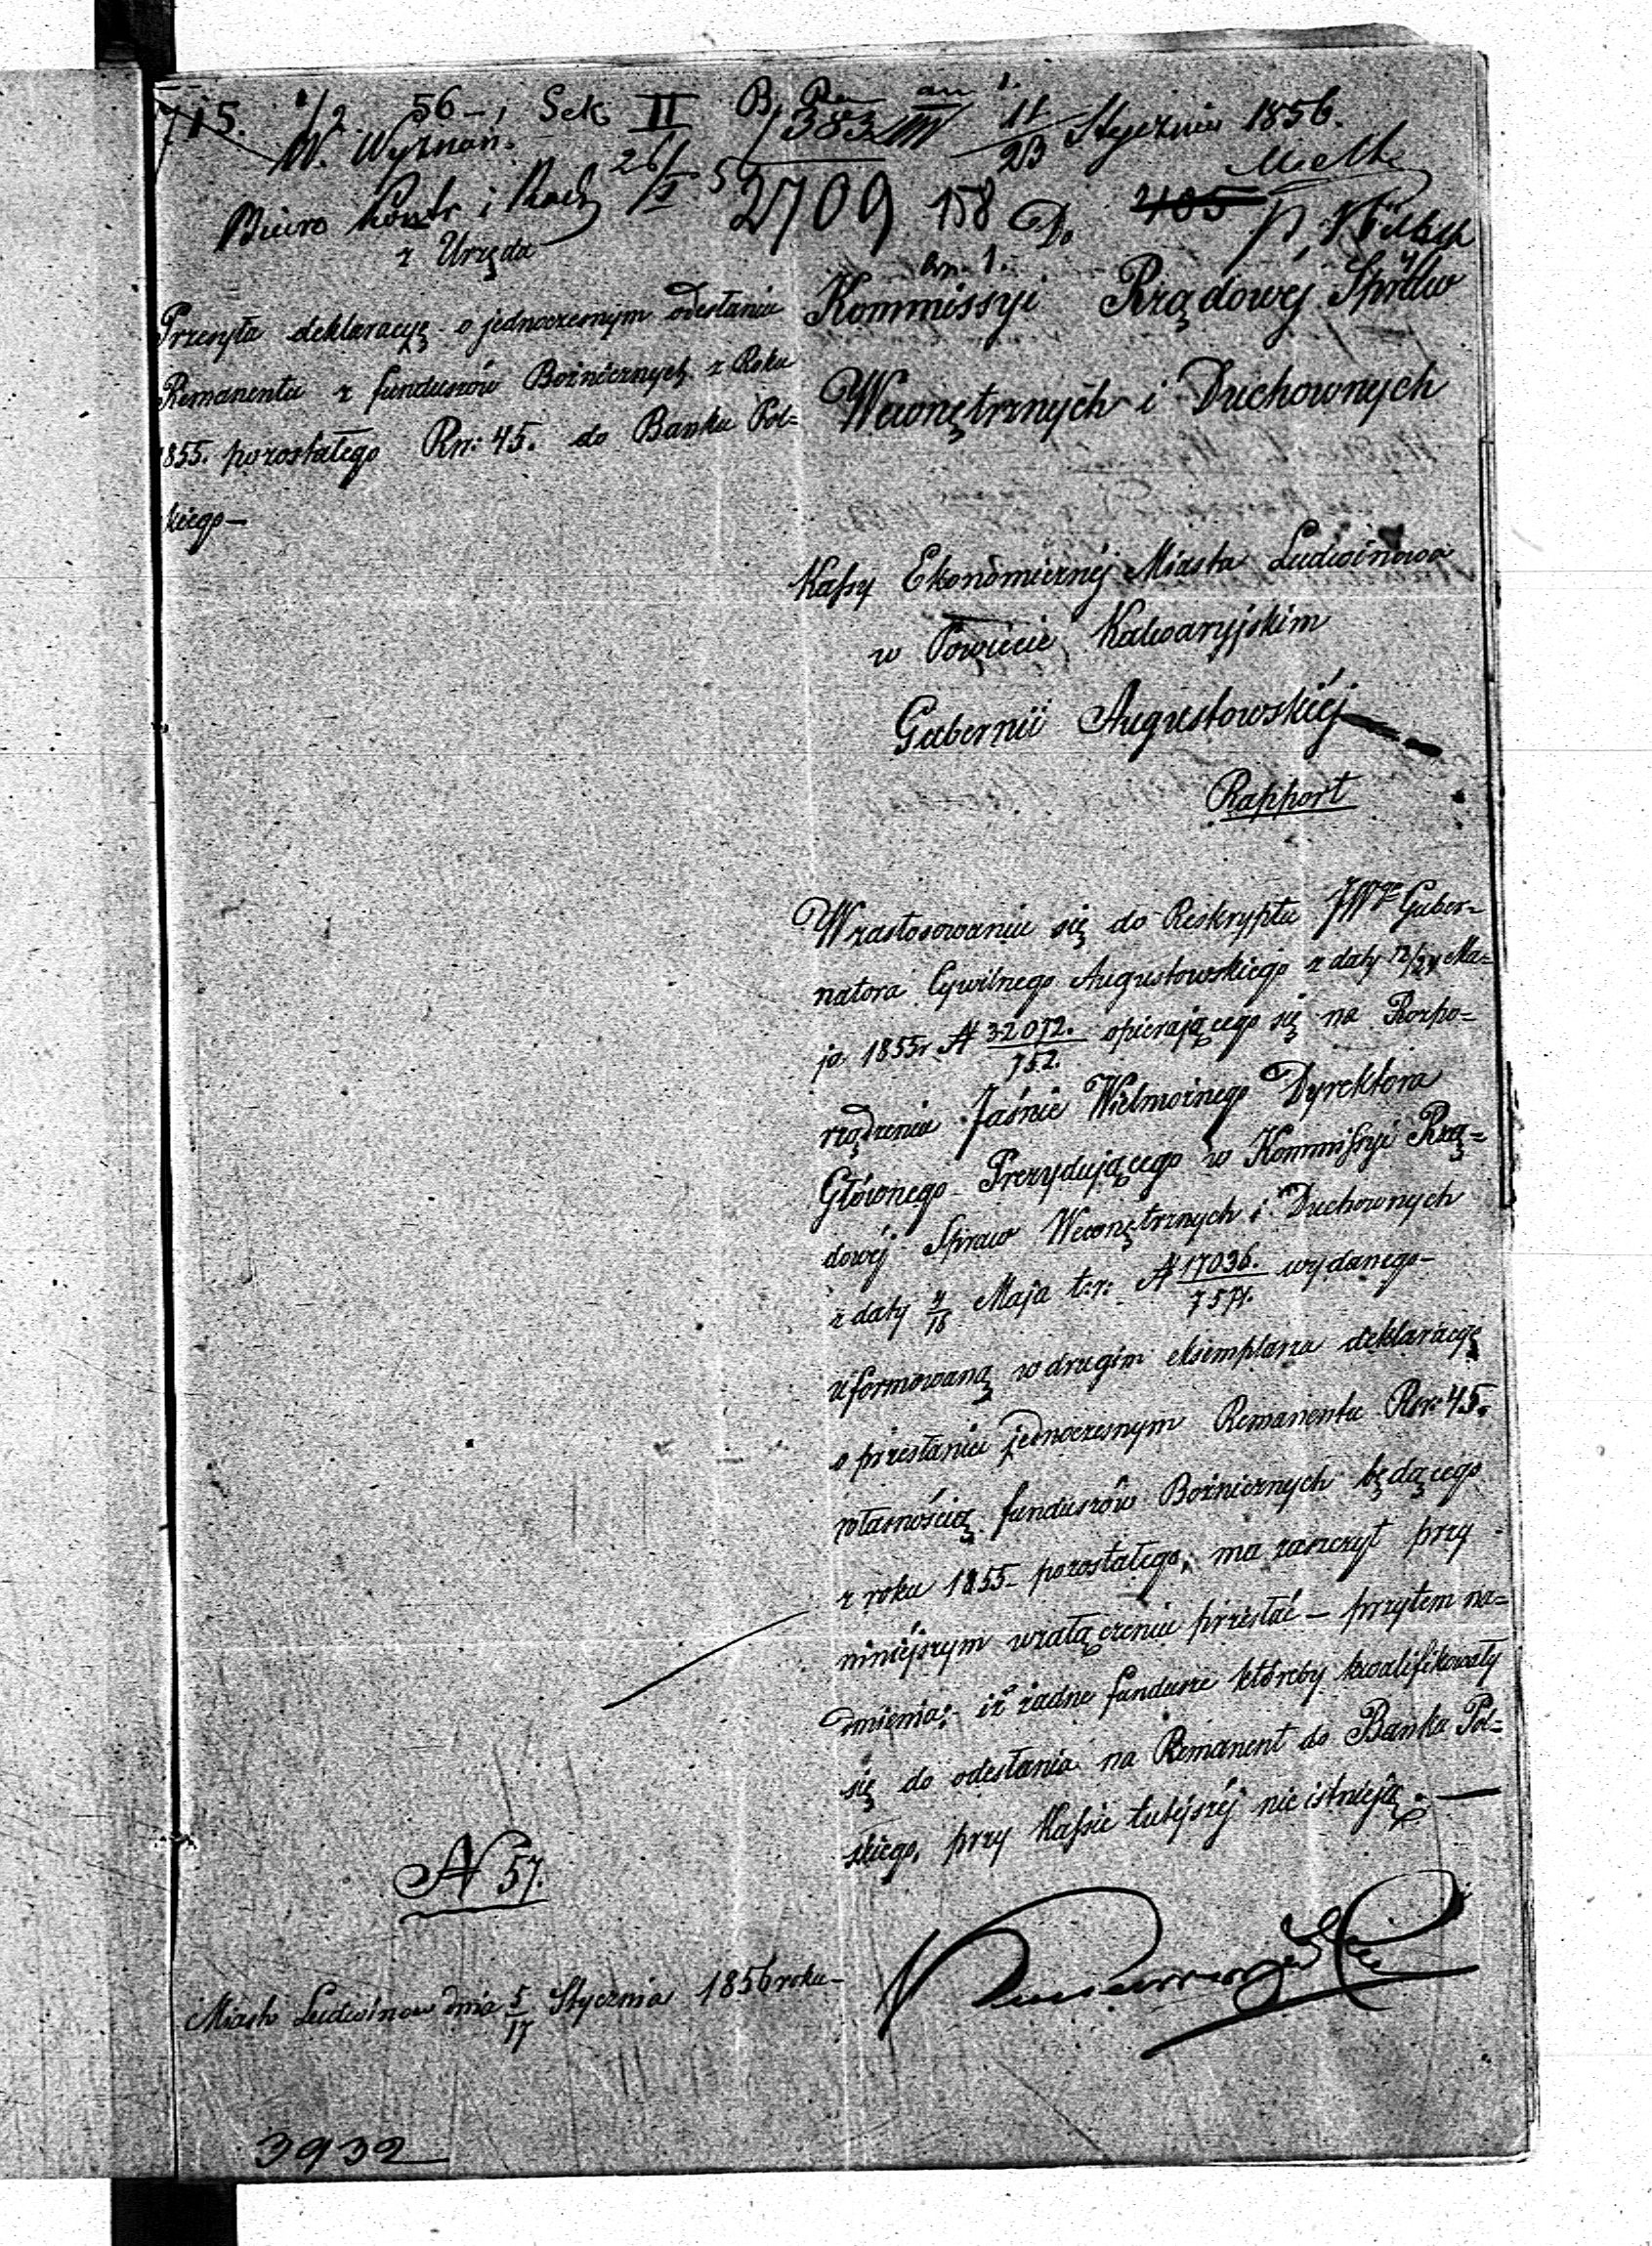 15. 1/2 56 – Sek II
W. Wyznań.
Biuro Kontr i Rach 26/I 5
z Urzędu
383 11/23 Stycznia 1856.
2709 158 Do 405
an. 1.
Przesyła deklaracyę o jednoczesnym odesłaniu
Remanentu z funduszów Bożniczych z Roku
1855. pozostałego Rsr: 45. do Banku Pol=
skiego –
Kommissyi Rządowéj Spraw
Wewnętrznych i Duchownych
Kassy Ekonomicznéj Miasta Ludwinowa
w Powiecie Kalwaryjskim
Gubernii Augustowskiéj
Rapport
W zastosowaniu się do Reskryptu JWgo Guber=
natora Cywilnego Augustowskiego z daty 12/24 Ma=
ja 1855r N 32072./752. opierającego się na Rozpo=
rządzeniu Jaśnie Wielmożnego Dyrektora
Głównego Prezydującego w Kommissyi Rzą=
dowéj Spraw Wewnętrznych i Duchownych
z daty 4/16 Maja t:r: N 17036./7574. wydanego –
uformowaną w drugim eksemplarzu deklaracyę
o przesłaniu jednoczesnym Remanentu Rsr: 45.
własnością funduszów Bożniczych będącego
z roku 1855 – pozostałego, ma zaszczyt przy
niniéjszym wzałączeniu przesłać – przytem na=
dmienia; iż żadne fundusze któreby kwalifikowały
się do odesłania na Remanent do Banku Pol=
skiego, przy Kassie tutéjszéj nie istnieją. —
N 57.
Miasto Ludwinow dnia 5/17 Stycznia 1856 roku –
3932